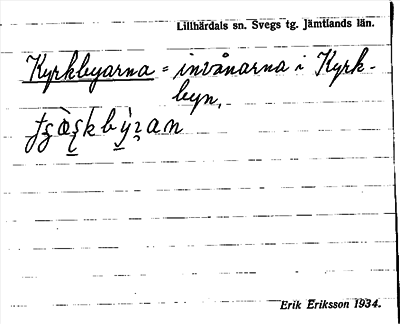 Lillhärdals sn. Svegs tg. Jämtlands län.
Kyrkbyarna = invånarna i Kyrk-
byn.
Erik Eriksson 1934.